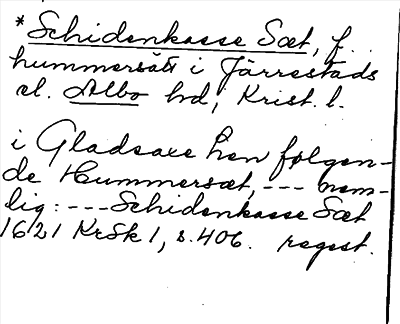 *Schidenkasse Sæt, f. .
hummersätt i Järrestads
el. Albo hd, Krist. l.
i Gladsaxe hen følgen-
de Hummersæt, --- nem-
lig: --- Schidenkasse Sæt
1621 KrSk 1, s. 406. regest.